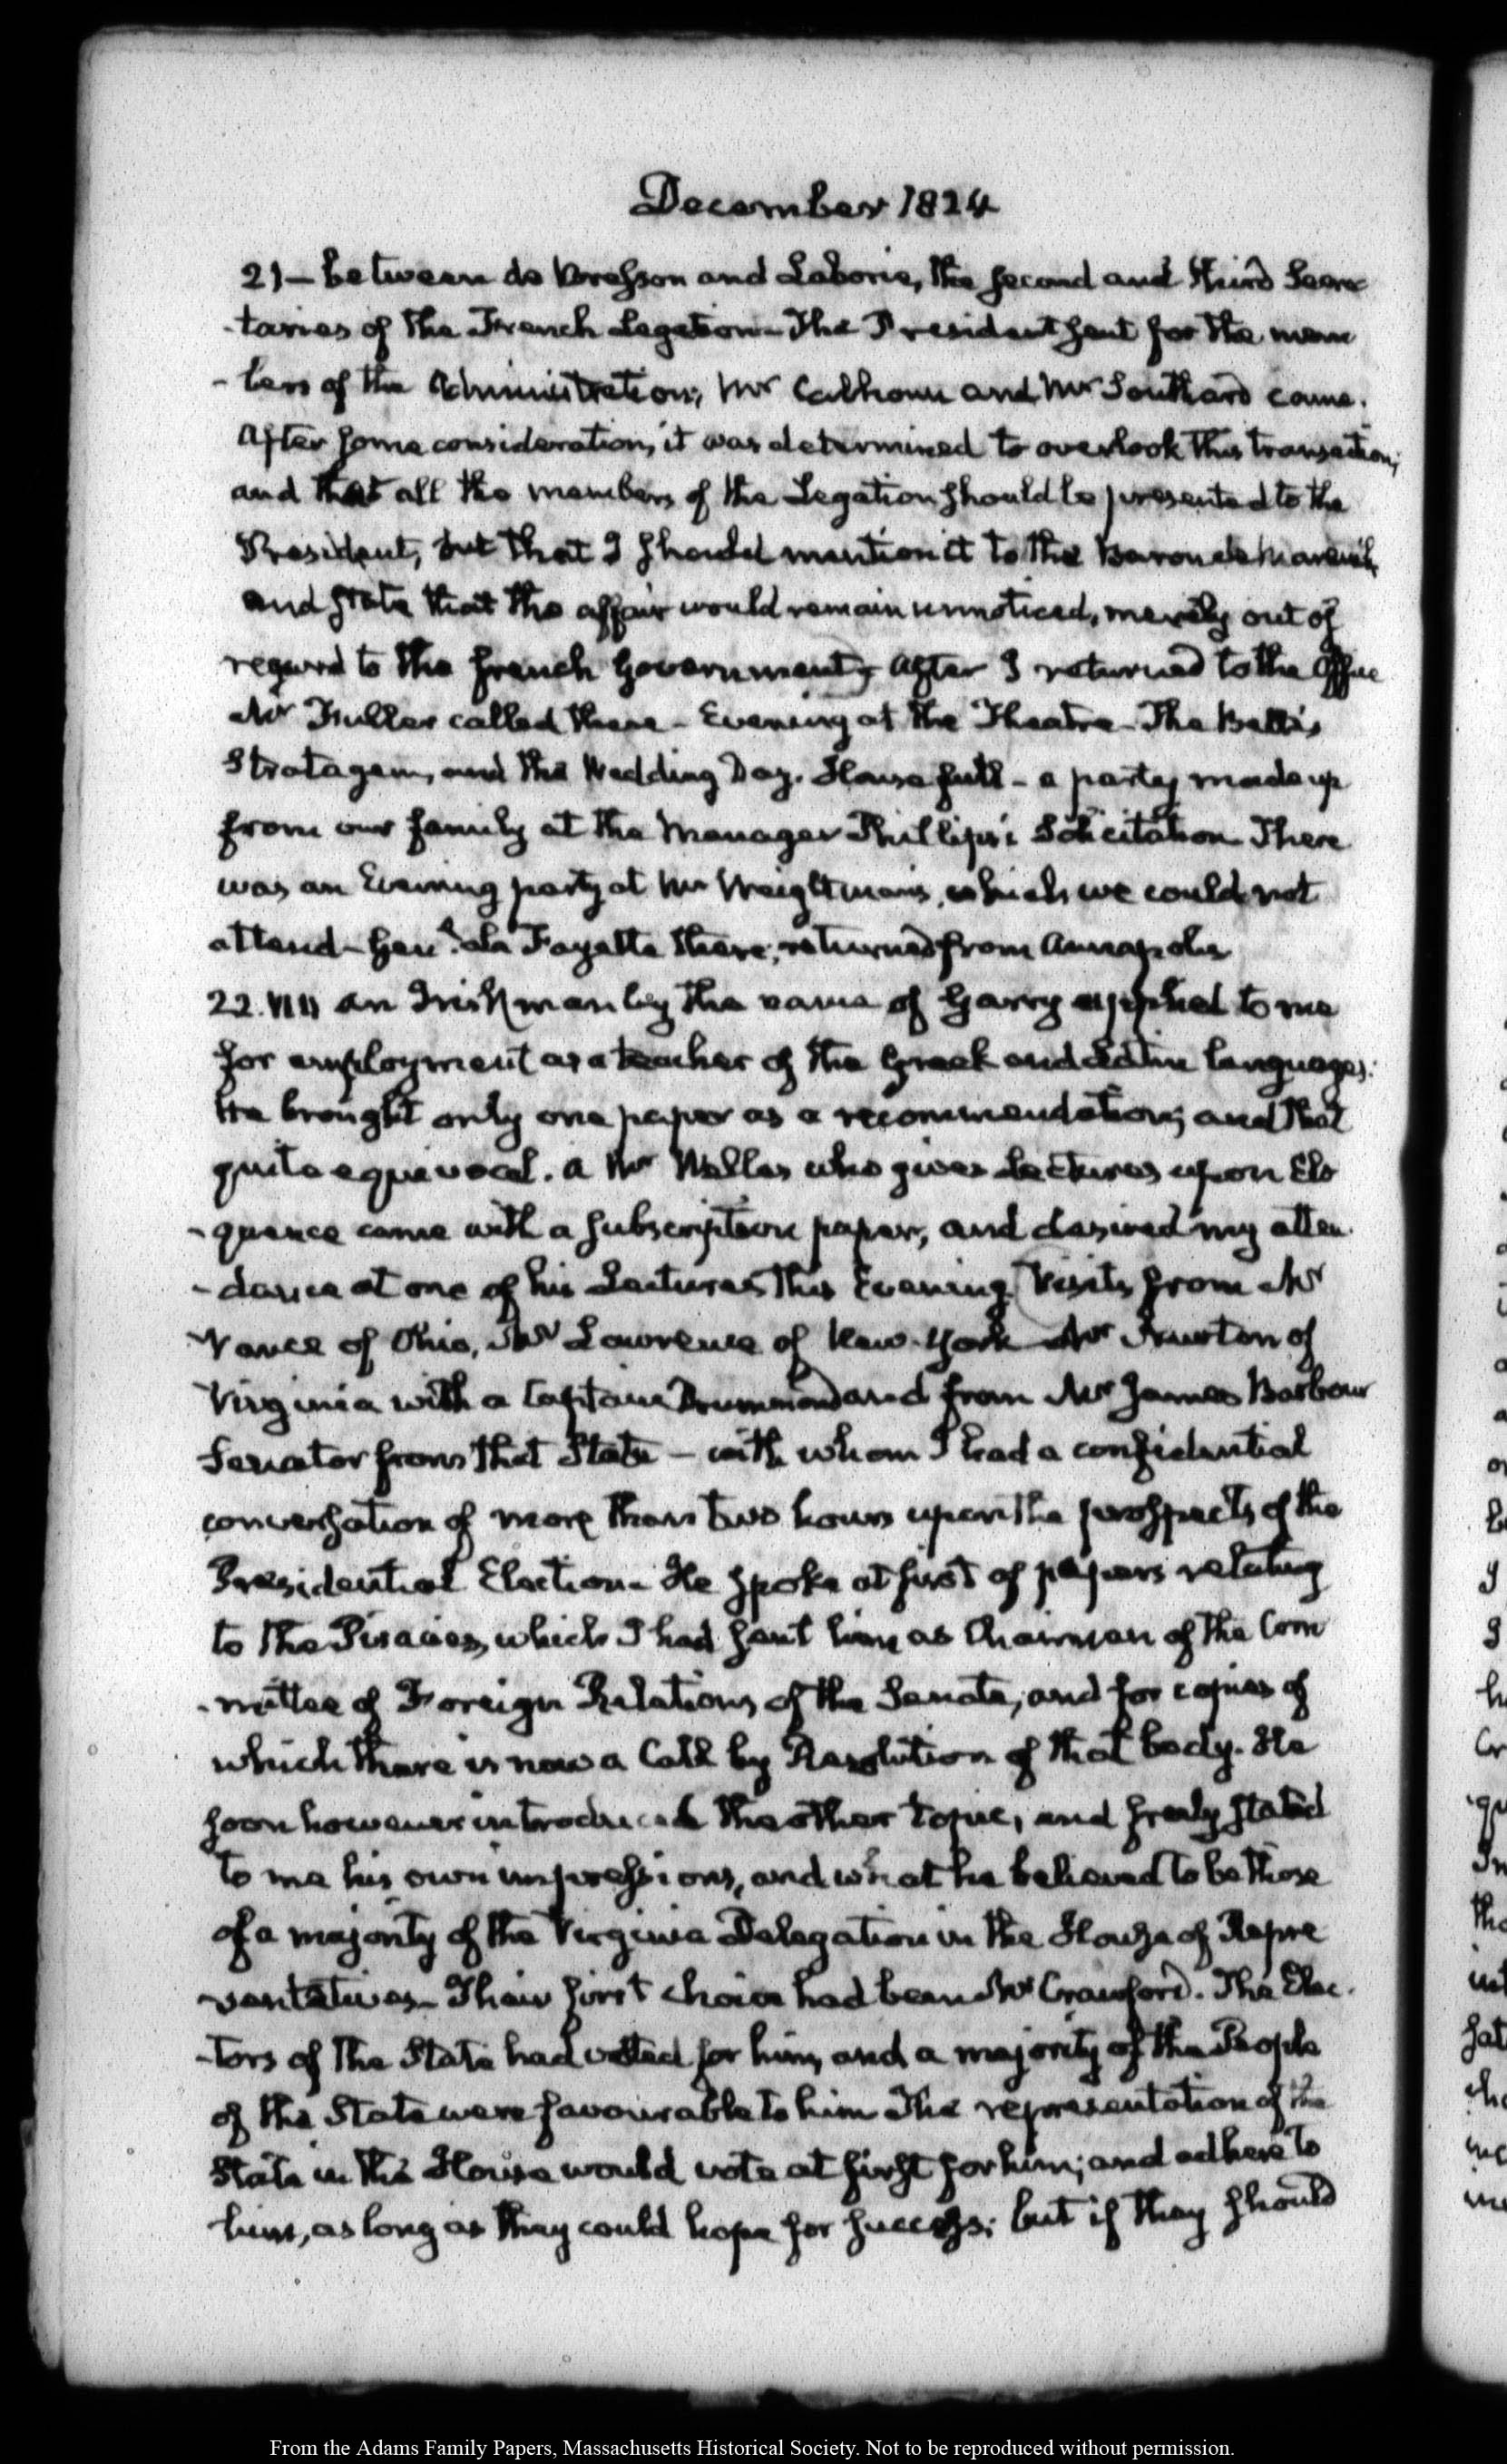 December 1824
21— between de Bresson and Laborie, the second and third Secre
-taries of the French Legation— The President sent for the mem
-bers of the Administration; Mr Calhoun and Mr Southard came.
After some consideration, it was determined to overlook this transaction,
and that all the members of the Legation should be presented to the
President, but that I should mention it to the Baron de Mareuil,
and state that the affair would remain unnoticed, merely out of
regard to the french Government— After I returned to the Office
Mr Fuller called there— Evening at the Theatre— The Belle's
Stratagem, and the Wedding Day. House full— a party made up
from our family at the Manager Phillips's Solicitation There
was an Evening party at Mr Weightman's, which we could not
attend— Genl. la Fayette there; returned from Annapolis
22. VII An Irishman by the name of Garry applied to me
for employment as a teacher of the Greek and Latin languages.
He brought only one paper as a recommendation; and that
quite equivocal. A Mr Wells who gives lectures upon Elo
-quence came with a subscription paper, and desired my atten
-dance at one of his Lectures this Evening. Visits from Mr
Vance of Ohio, Mr Lawrence of New-York Mr Newton of
Virginia with a Captain Drummond and from Mr James Barbour
Senator from that State— with whom I had a confidential
conversation of more than two hours upon the prospects of the
Presidential Election— He spoke at first of papers relating
to the Piracies, which I had sent him as Chairman of the Com
-mittee of Foreign Relations of the Senate, and for copies of
which there is now a Call by Resolution of that body. He
soon however introduced the other topic, and freely stated
to me his own impressions, and what he believed to be those
of a majority of the Virginia Delegation in the House of Repre
-sentatives— Their first choice had been Mr Crawford. The Elec-
-tors of the State had voted for him, and a majority of the People
of the State were favourable to him The representation of the
State in the House would vote at first for him; and adhere to
him, as long as they could hope for success; but if they should
From the Adams Family Papers, Massachusetts Historical Society. Not to be reproduced without permission.